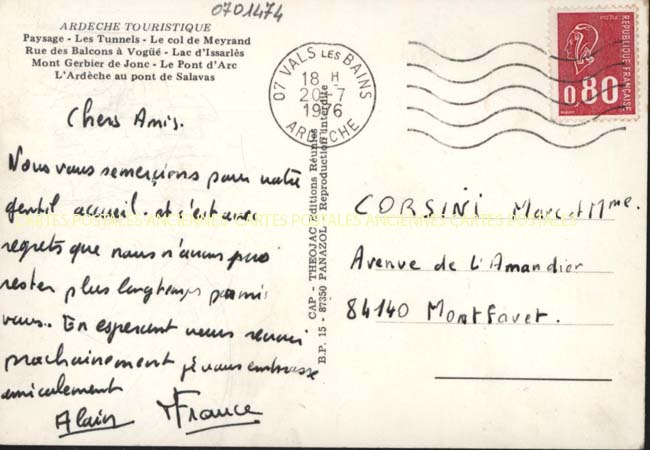 0701474
ARDECHE TOURISTIQUE
Paysage - Les Tunnels - Le col de Meyrand
Rue des Balcons à Vogüé - Lac d'Issarlès
Mont Gerbier de Jonc - Le Pont d'Arc
L'Ardèche au pont de Salavas
Chers Amis.
Nous vous remercions pour votre
gentil accueil. et c'est avec
regrets que nous n'avons pas
rester plus longtemps parmi
vous.. En esperant vous revoir
prochainement je vous embrasse
amicalement
Alain France
07 VALS LES BAINS
18 H
20-7
1976
ARDECHE
CAP - THEOJAC Editions Réunies
B.P. 15 - 87350 PANAZOL - Reproduction interdite
POSTES
REPUBLIQUE FRANÇAISE
0,80
CORSINI Marc et Mme.
Avenue de L'Amandier
84140 Montfavet.
CARTES POSTALES ANCIENNES CARTES POSTALES ANCIENNES CARTES POSTALES